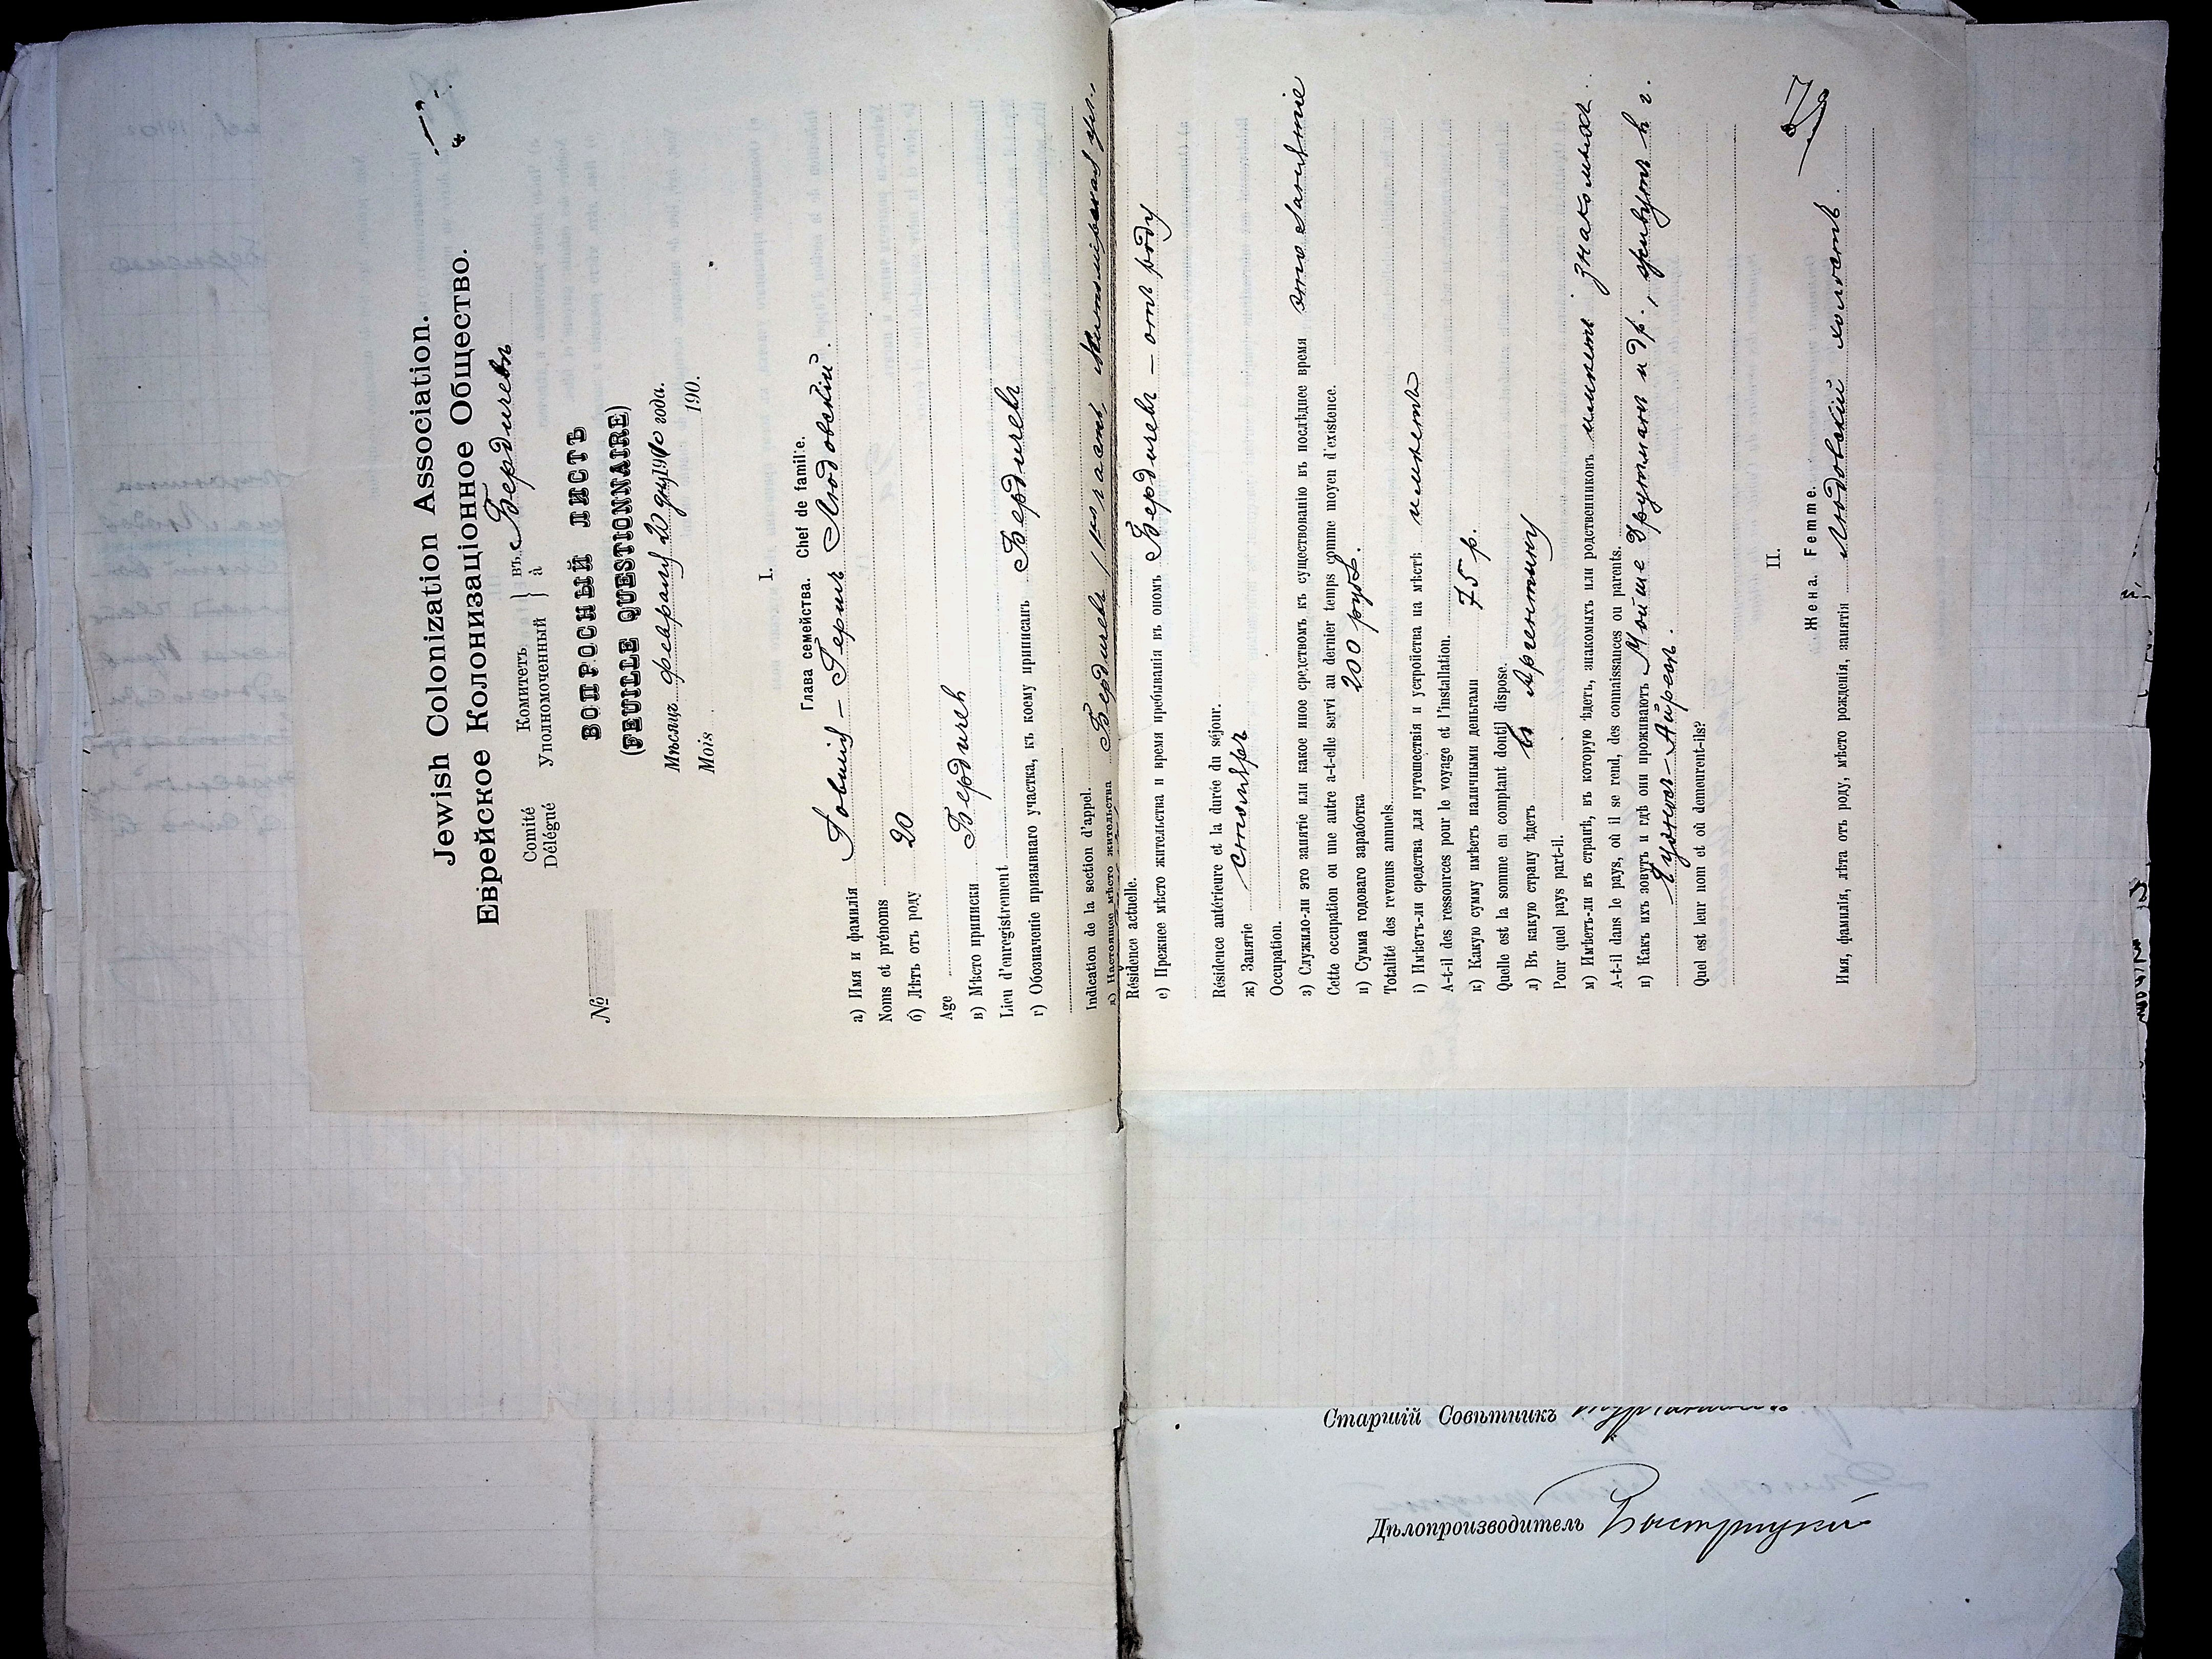 Jewish Colonization Association.
Еврейское Колонизаціонное Общество.
Comité Комитетъ } въ Бердичевъ
Délégué Уполномоченный } à
№
ВОПРОСНЫЙ ЛИСТЪ
(FEUILLE QUESTIONNAIRE)
Мѣсяцъ 20 дня 1910 года.
Mois 190 .
I.
Глава семейства. Chef de famille.
а) Имя и фамилія Гершъ Людовскій.
Noms et prénoms
б) Лѣтъ отъ роду 20
Age
в) Мѣсто приписки Бердичев
Lieu d'enregistrement
г) Обозначеніе призывнаго участка, къ коему приписанъ Бердичевъ
Indication de la section d'appel.
д) Настоящее мѣсто жительства Бердичевъ
Résidence actuelle.
е) Прежнее мѣсто жительства и время пребыванія въ ономъ Бердичевъ — отъ роду
Résidence antérieure et la durée du séjour.
ж) Занятіе столяръ
Occupation.
з) Служило-ли это занятіе или какое иное средствомъ къ существованію въ послѣднее время это занятіе
Cette occupation ou une autre a-t-elle servi au dernier temps comme moyen d'existence.
и) Сумма годоваго заработка 200 руб.
Totalité des revenus annuels.
і) Имѣетъ-ли средства для путешествія и устройства на мѣстѣ имѣетъ
A-t-il des ressources pour le voyage et l'installation.
к) Какую сумму имѣетъ наличными деньгами 75 р.
Quelle est la somme en comptant dont il dispose.
л) Въ какую страну ѣдетъ въ Аргентину
Pour quel pays part-il.
м) Имѣетъ-ли въ странѣ, въ которую ѣдетъ, знакомыхъ или родственниковъ имѣетъ знакомыхъ.
A-t-il dans le pays, où il se rend, des connaissances ou parents.
н) Какъ ихъ зовутъ и гдѣ они проживаютъ Мойше Друтман и др., живутъ въ г.
Буэнос-Айресъ.
Quel est leur nom et où demeurent-ils?
II.
Жена. Femme.
Имя, фамилія, лѣта отъ роду, мѣсто рожденія, занятія Людовскій холостъ.
Старшій Совѣтникъ
Дѣлопроизводитель